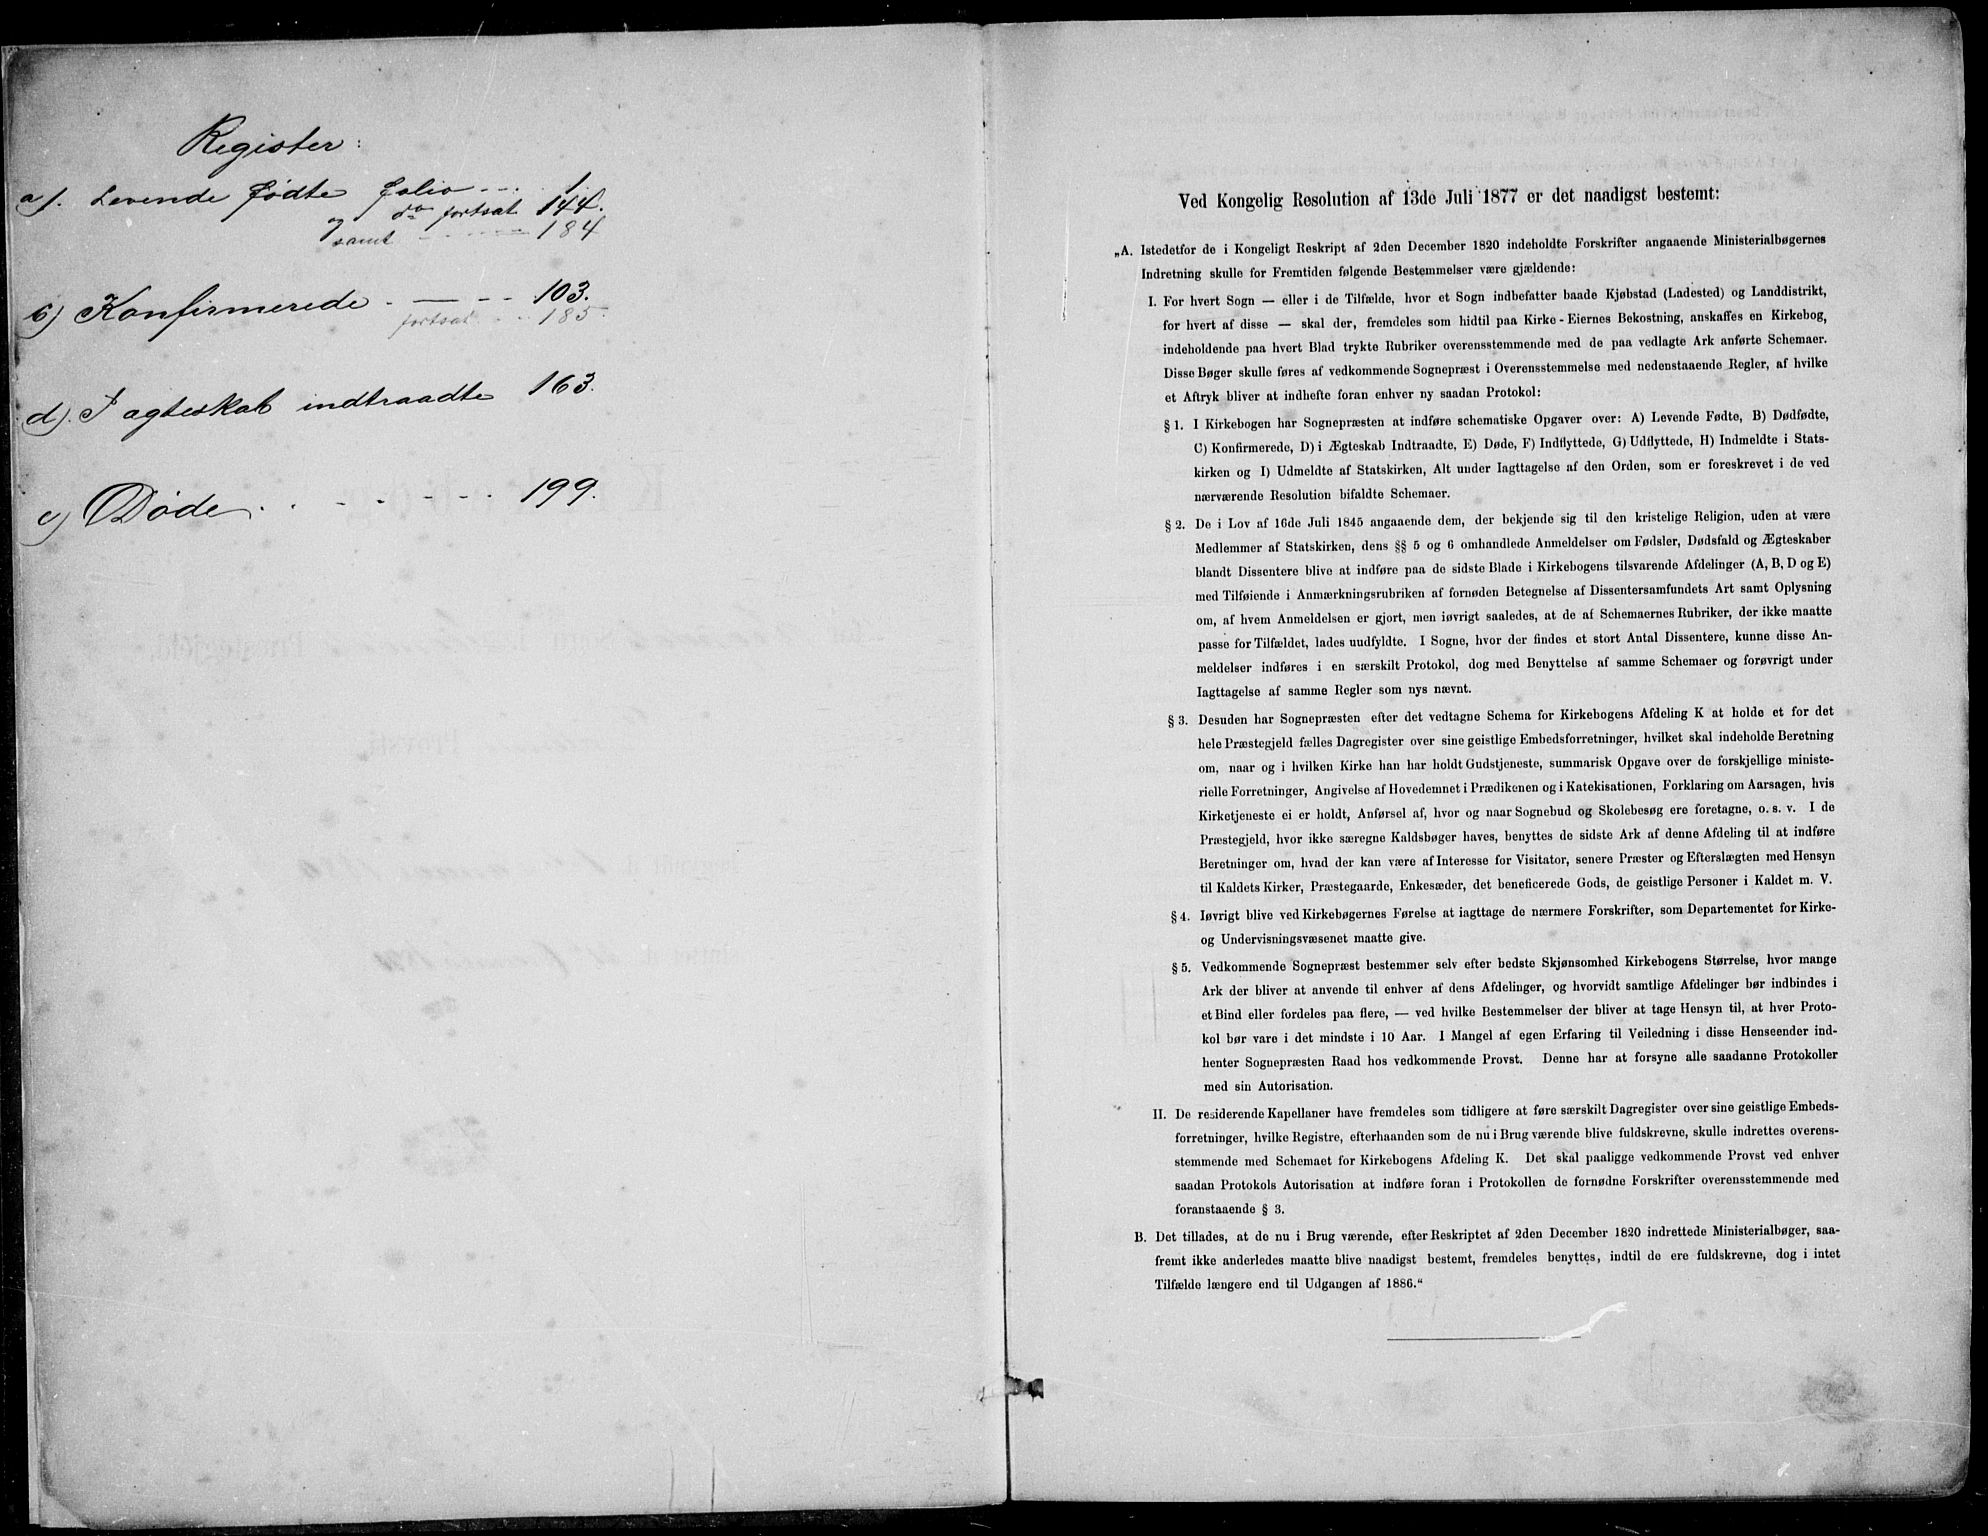 Register:
a). Levende fødte folio - - - 1
og do fortsat 144.
samt - - - - - 184
b) Konfirmerede - — - - 103.
fortsat - - - 185.
d). I ægteskab indtraadte 163.
e) Døde. - - - - - - 199.
Ved Kongelig Resolution af 13de Juli 1877 er det naadigst bestemt:
„A. Istedetfor de i Kongeligt Reskript af 2den December 1820 indeholdte Forskrifter angaaende Ministerialbøgernes
Indretning skulle for Fremtiden følgende Bestemmelser være gjældende:
I. For hvert Sogn — eller i de Tilfælde, hvor et Sogn indbefatter baade Kjøbstad (Ladested) og Landdistrikt,
for hvert af disse — skal der, fremdeles som hidtil paa Kirke-Eiernes Bekostning, anskaffes en Kirkebog,
indeholdende paa hvert Blad trykte Rubriker overensstemmende med de paa vedlagte Ark anførte Schemaer.
Disse Bøger skulle føres af vedkommende Sognepræst i Overensstemmelse med nedenstaaende Regler, af hvilke
et Aftryk bliver at indhefte foran enhver ny saadan Protokol:
§ 1. I Kirkebogen har Sognepræsten at indføre schematiske Opgaver over: A) Levende Fødte, B) Dødfødte,
C) Konfirmerede, D) i Ægteskab Indtraadte, E) Døde, F) Indflyttede, G) Udflyttede, H) Indmeldte i Stats-
kirken og I) Udmeldte af Statskirken, Alt under Iagttagelse af den Orden, som er foreskrevet i de ved
nærværende Resolution bifaldte Schemaer.
§ 2. De i Lov af 16de Juli 1845 angaaende dem, der bekjende sig til den kristelige Religion, uden at være
Medlemmer af Statskirken, dens §§ 5 og 6 omhandlede Anmeldelser om Fødsler, Dødsfald og Ægteskaber
blandt Dissentere blive at indføre paa de sidste Blade i Kirkebogens tilsvarende Afdelinger (A, B, D og E)
med Tilføiende i Anmærkningsrubriken af fornøden Betegnelse af Dissentersamfundets Art samt Oplysning
om, af hvem Anmeldelsen er gjort, men iøvrigt saaledes, at de af Schemaernes Rubriker, der ikke maatte
passe for Tilfældet, lades uudfyldte. I Sogne, hvor der findes et stort Antal Dissentere, kunne disse An-
meldelser indføres i en særskilt Protokol, dog med Benyttelse af samme Schemaer og forøvrigt under
Iagttagelse af samme Regler som nys nævnt.
§ 3. Desuden har Sognepræsten efter det vedtagne Schema for Kirkebogens Afdeling K at holde et for det
hele Præstegjeld fælles Dagregister over sine geistlige Embedsforretninger, hvilket skal indeholde Beretning
om, naar og i hvilken Kirke han har holdt Gudstjeneste, summarisk Opgave over de forskjellige ministe-
rielle Forretninger, Angivelse af Hovedemnet i Prædikenen og i Katekisationen, Forklaring om Aarsagen, hvis
Kirketjeneste ei er holdt, Anførsel af, hvor og naar Sognebud og Skolebesøg ere foretagne, o. s. v. I de
Præstegjeld, hvor ikke særegne Kaldsbøger haves, benyttes de sidste Ark af denne Afdeling til at indføre
Beretninger om, hvad der kan være af Interesse for Visitator, senere Præster og Efterslægten med Hensyn
til Kaldets Kirker, Præstegaarde, Enkesæder, det beneficerede Gods, de geistlige Personer i Kaldet m. V.
§ 4. Iøvrigt blive ved Kirkebøgernes Førelse at iagttage de nærmere Forskrifter, som Departementet for Kirke-
og Undervisningsvæsenet maatte give.
§ 5. Vedkommende Sognepræst bestemmer selv efter bedste Skjønsomhed Kirkebogens Størrelse, hvor mange
Ark der bliver at anvende til enhver af dens Afdelinger, og hvorvidt samtlige Afdelinger bør indbindes i
et Bind eller fordeles paa flere, — ved hvilke Bestemmelser der bliver at tage Hensyn til, at hver Proto-
kol bør vare i det mindste i 10 Aar. I Mangel af egen Erfaring til Veiledning i disse Henseender ind-
henter Sognepræsten Raad hos vedkommende Provst. Denne har at forsyne alle saadanne Protokoller
med sin Autorisation.
II. De residerende Kapellaner have fremdeles som tidligere at føre særskilt Dagregister over sine geistlige Embeds-
forretninger, hvilke Registre, efterhaanden som de nu i Brug værende blive fuldskrevne, skulle indrettes overens-
stemmende med Schemaet for Kirkebogens Afdeling K. Det skal paaligge vedkommende Provst ved enhver
saadan Protokols Autorisation at indføre foran i Protokollen de fornødne Forskrifter overensstemmende med
foranstaaende § 3.
B. Det tillades, at de nu i Brug værende, efter Reskriptet af 2den December 1820 indrettede Ministerialbøger, saa-
fremt ikke anderledes maatte blive naadigst bestemt, fremdeles benyttes, indtil de ere fuldskrevne, dog i intet
Tilfælde længere end til Udgangen af 1886.“